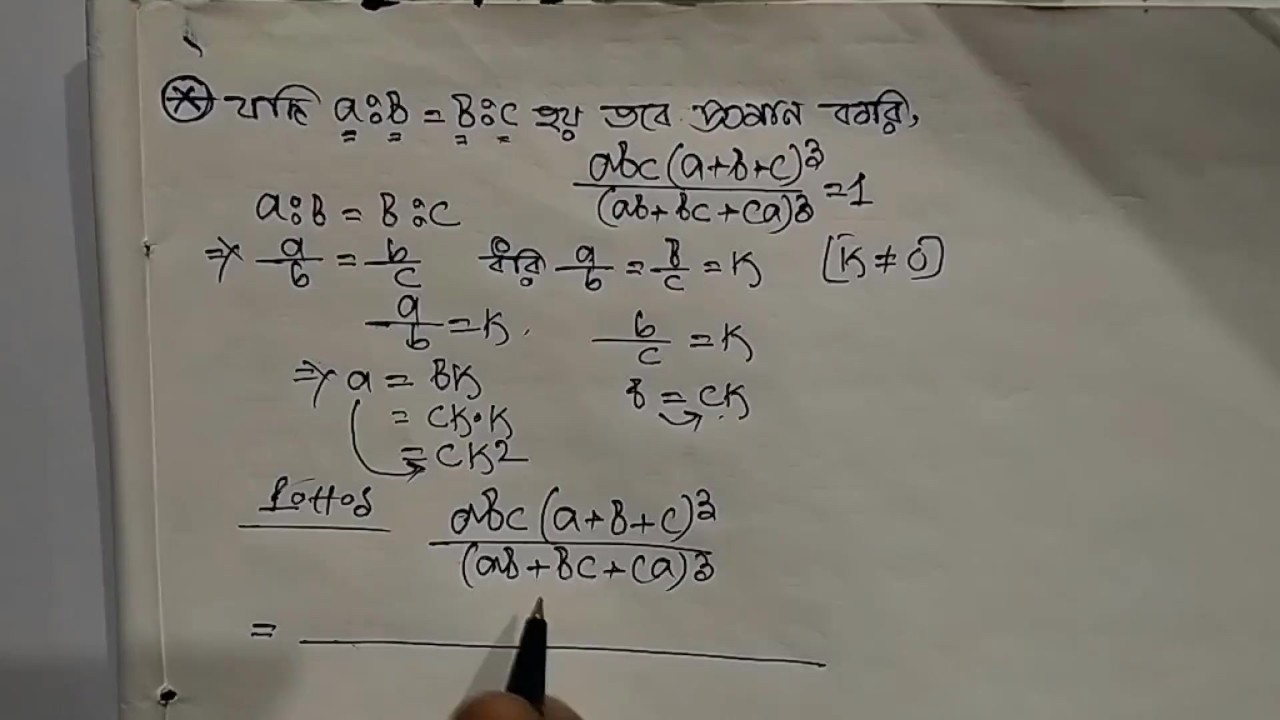 ⊛ যদি a:B = B:C হয় তবে প্রমান করি,
abc(a+B+C)3
(aB+BC+Ca)3 =1
a:B = B:C
⇒ a/b = b/c ধরি a/b = B/C = K [K ≠ 0]
a/b = K, b/c = K
⇒ a = BK B = CK
= CK·K
= CK2
aBC(a+B+C)3
(aB+BC+Ca)3
=